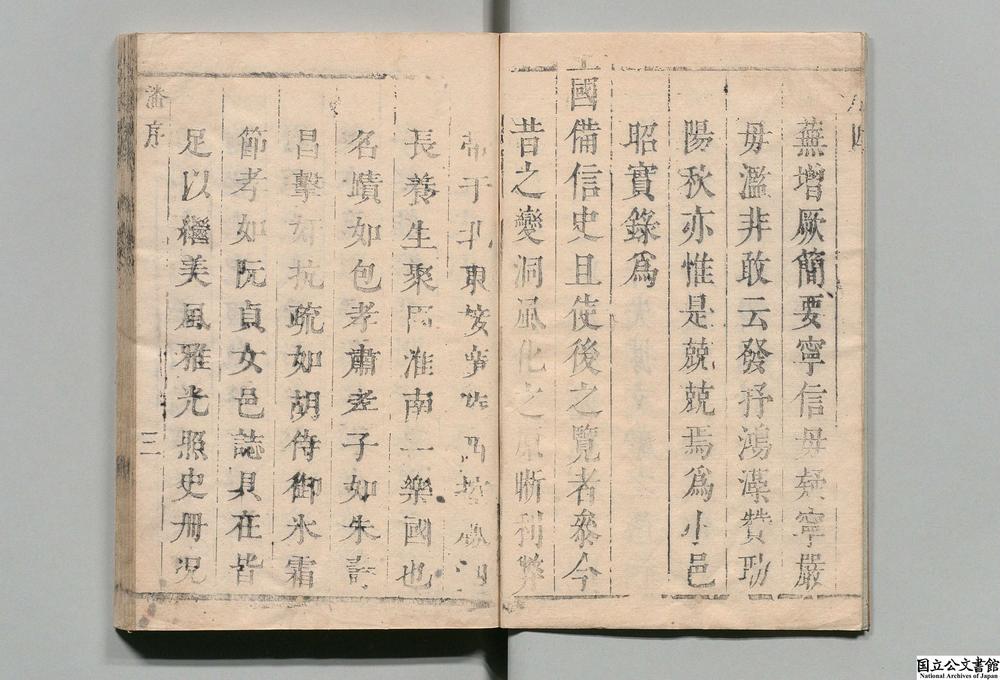 蕪增厥簡要寧信毋疑寧嚴
毋濫非敢云發抒鴻藻贊勷
陽秋亦惟是兢兢焉為小邑
昭實錄為
國備信史且使後之覽者參今
昔之變洞風化之原晰利弊
長養生聚固淮南一樂國也
名蹟如包孝肅孝子如朱壽
昌擊奸抗疏如胡侍御氷霜
節孝如阮貞女邑誌具在皆
足以繼美風雅光照史冊況
潘序
三
国立公文書館
National Archives of Japan